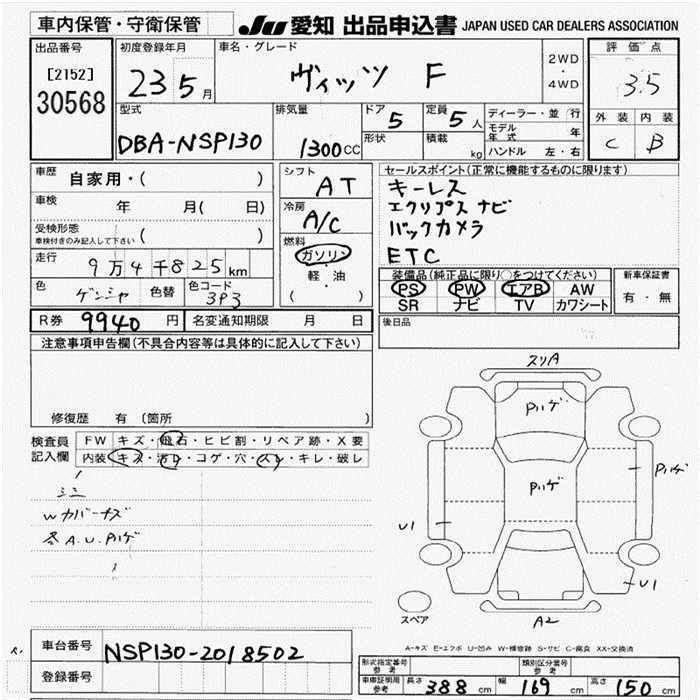 車内保管・守衛保管 JU 愛知 出品申込書 JAPAN USED CAR DEALERS ASSOCIATION
出品番号 [2152] 30568
初度登録年月 23 5月
車名・グレード ヴィッツ F
2WD・4WD
評価点 3.5
外装 C 内装 B
型式 DBA-NSP130
排気量 1300cc
ドア 5 形状
定員 5人 積載 kg
ディーラー・並行
モデル年式 年
ハンドル 左・右
車歴 自家用・( )
車検 年 月( 日)
受検形態 ( )
車検付きのみ記入して下さい
走行 9万4千825km
色 ゲンシャ 色替 色コード 3P3
シフト AT
冷房 A/C
燃料 ガソリン
軽・油
( )
セールスポイント(正常に機能するものに限ります)
キーレス
エクリプスナビ
バックカメラ
ETC
装備品(純正品に限り○をつけてください)
PS PW エアB AW
SR ナビ TV カワシート
新車保証書
有・無
R券 9940円 名変通知期限 月 日
後日品
注意事項申告欄(不具合内容等は具体的に記入して下さい)
修復歴 有 (箇所 )
検査員記入欄
FW キズ・飛石・ヒビ割・リペア跡・X要
内装 キズ・汚れ・コゲ・穴・スレ・キレ・破レ
Wカバーキズ
各A.U.Pハゲ
スリA
Pハゲ
Pハゲ
Pハゲ
U1
U1
A2
スペア
A-キズ E-エクボ U-凹み W-補修跡 S-サビ C-腐食 XX-交換済
車台番号 NSP130-2018502
登録番号
形式指定番号 参考
類別区分番号 参考
車庫証明用 参考 長さ 388cm 幅 169cm 高さ 150cm